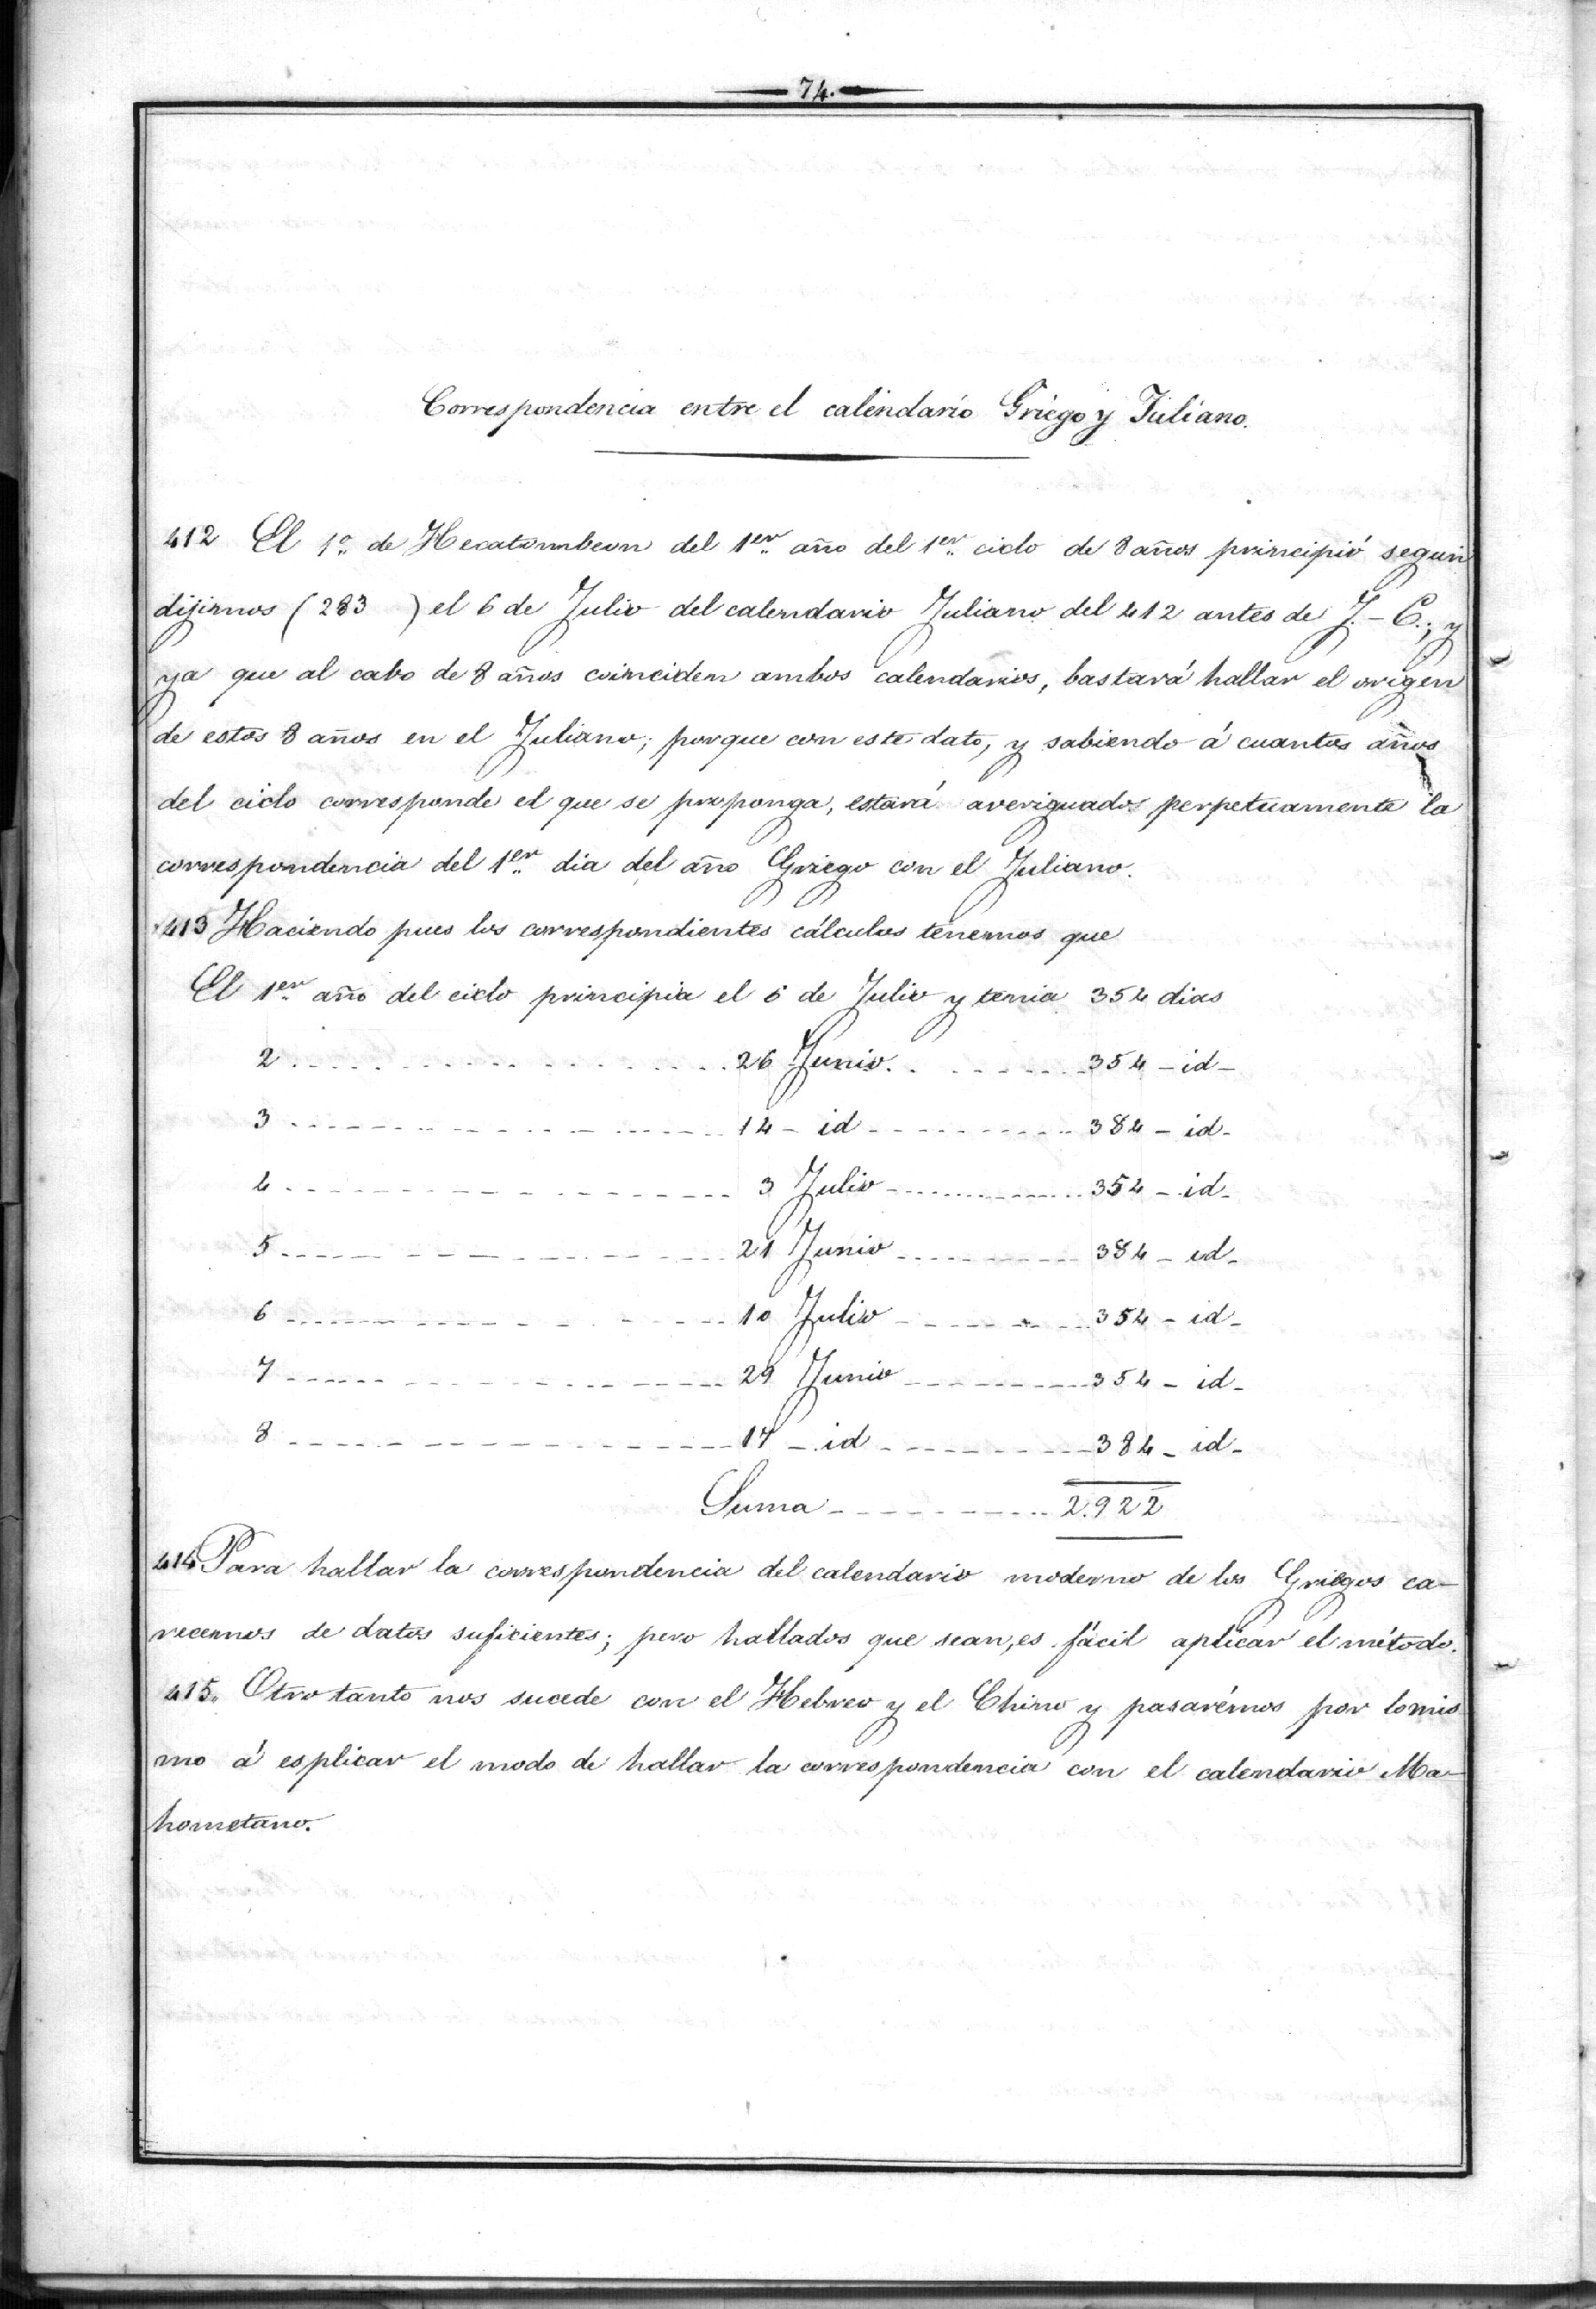 74.
Correspondencia entre el calendario Griego y Juliano.
412 El 1º de Hecatombeon del 1er año del 1er ciclo de 8 años principió segun
dijimos (283 ) el 6 de Julio del calendario Juliano del 412 antes de J.-C.; y
ya que al cabo de 8 años coinciden ambos calendarios, bastará hallar el origen
de estos 8 años en el Juliano; porque con este dato, y sabiendo á cuantos años
del ciclo corresponde el que se proponga, estará averiguado perpetuamente la
correspondencia del 1er dia del año Griego con el Juliano.
413 Haciendo pues los correspondientes cálculos tenemos que
El 1er año del ciclo principia el 6 de Julio y tenia 354 dias
2 26 Junio. 354 - id -
3 14 - id 384 - id -
4 3 Julio 354 - id -
5 21 Junio 384 - id -
6 10 Julio 354 - id -
7 29 Junio 354 - id -
8 17 - id 384 - id -
Suma 2.922
414 Para hallar la correspondencia del calendario moderno de los Griegos ca-
recemos de datos suficientes; pero hallados que sean, es fácil aplicar el método.
415. Otro tanto nos sucede con el Hebreo y el Chino y pasarémos por lo mis
mo á esplicar el modo de hallar la correspondencia con el calendario Ma-
hometano.